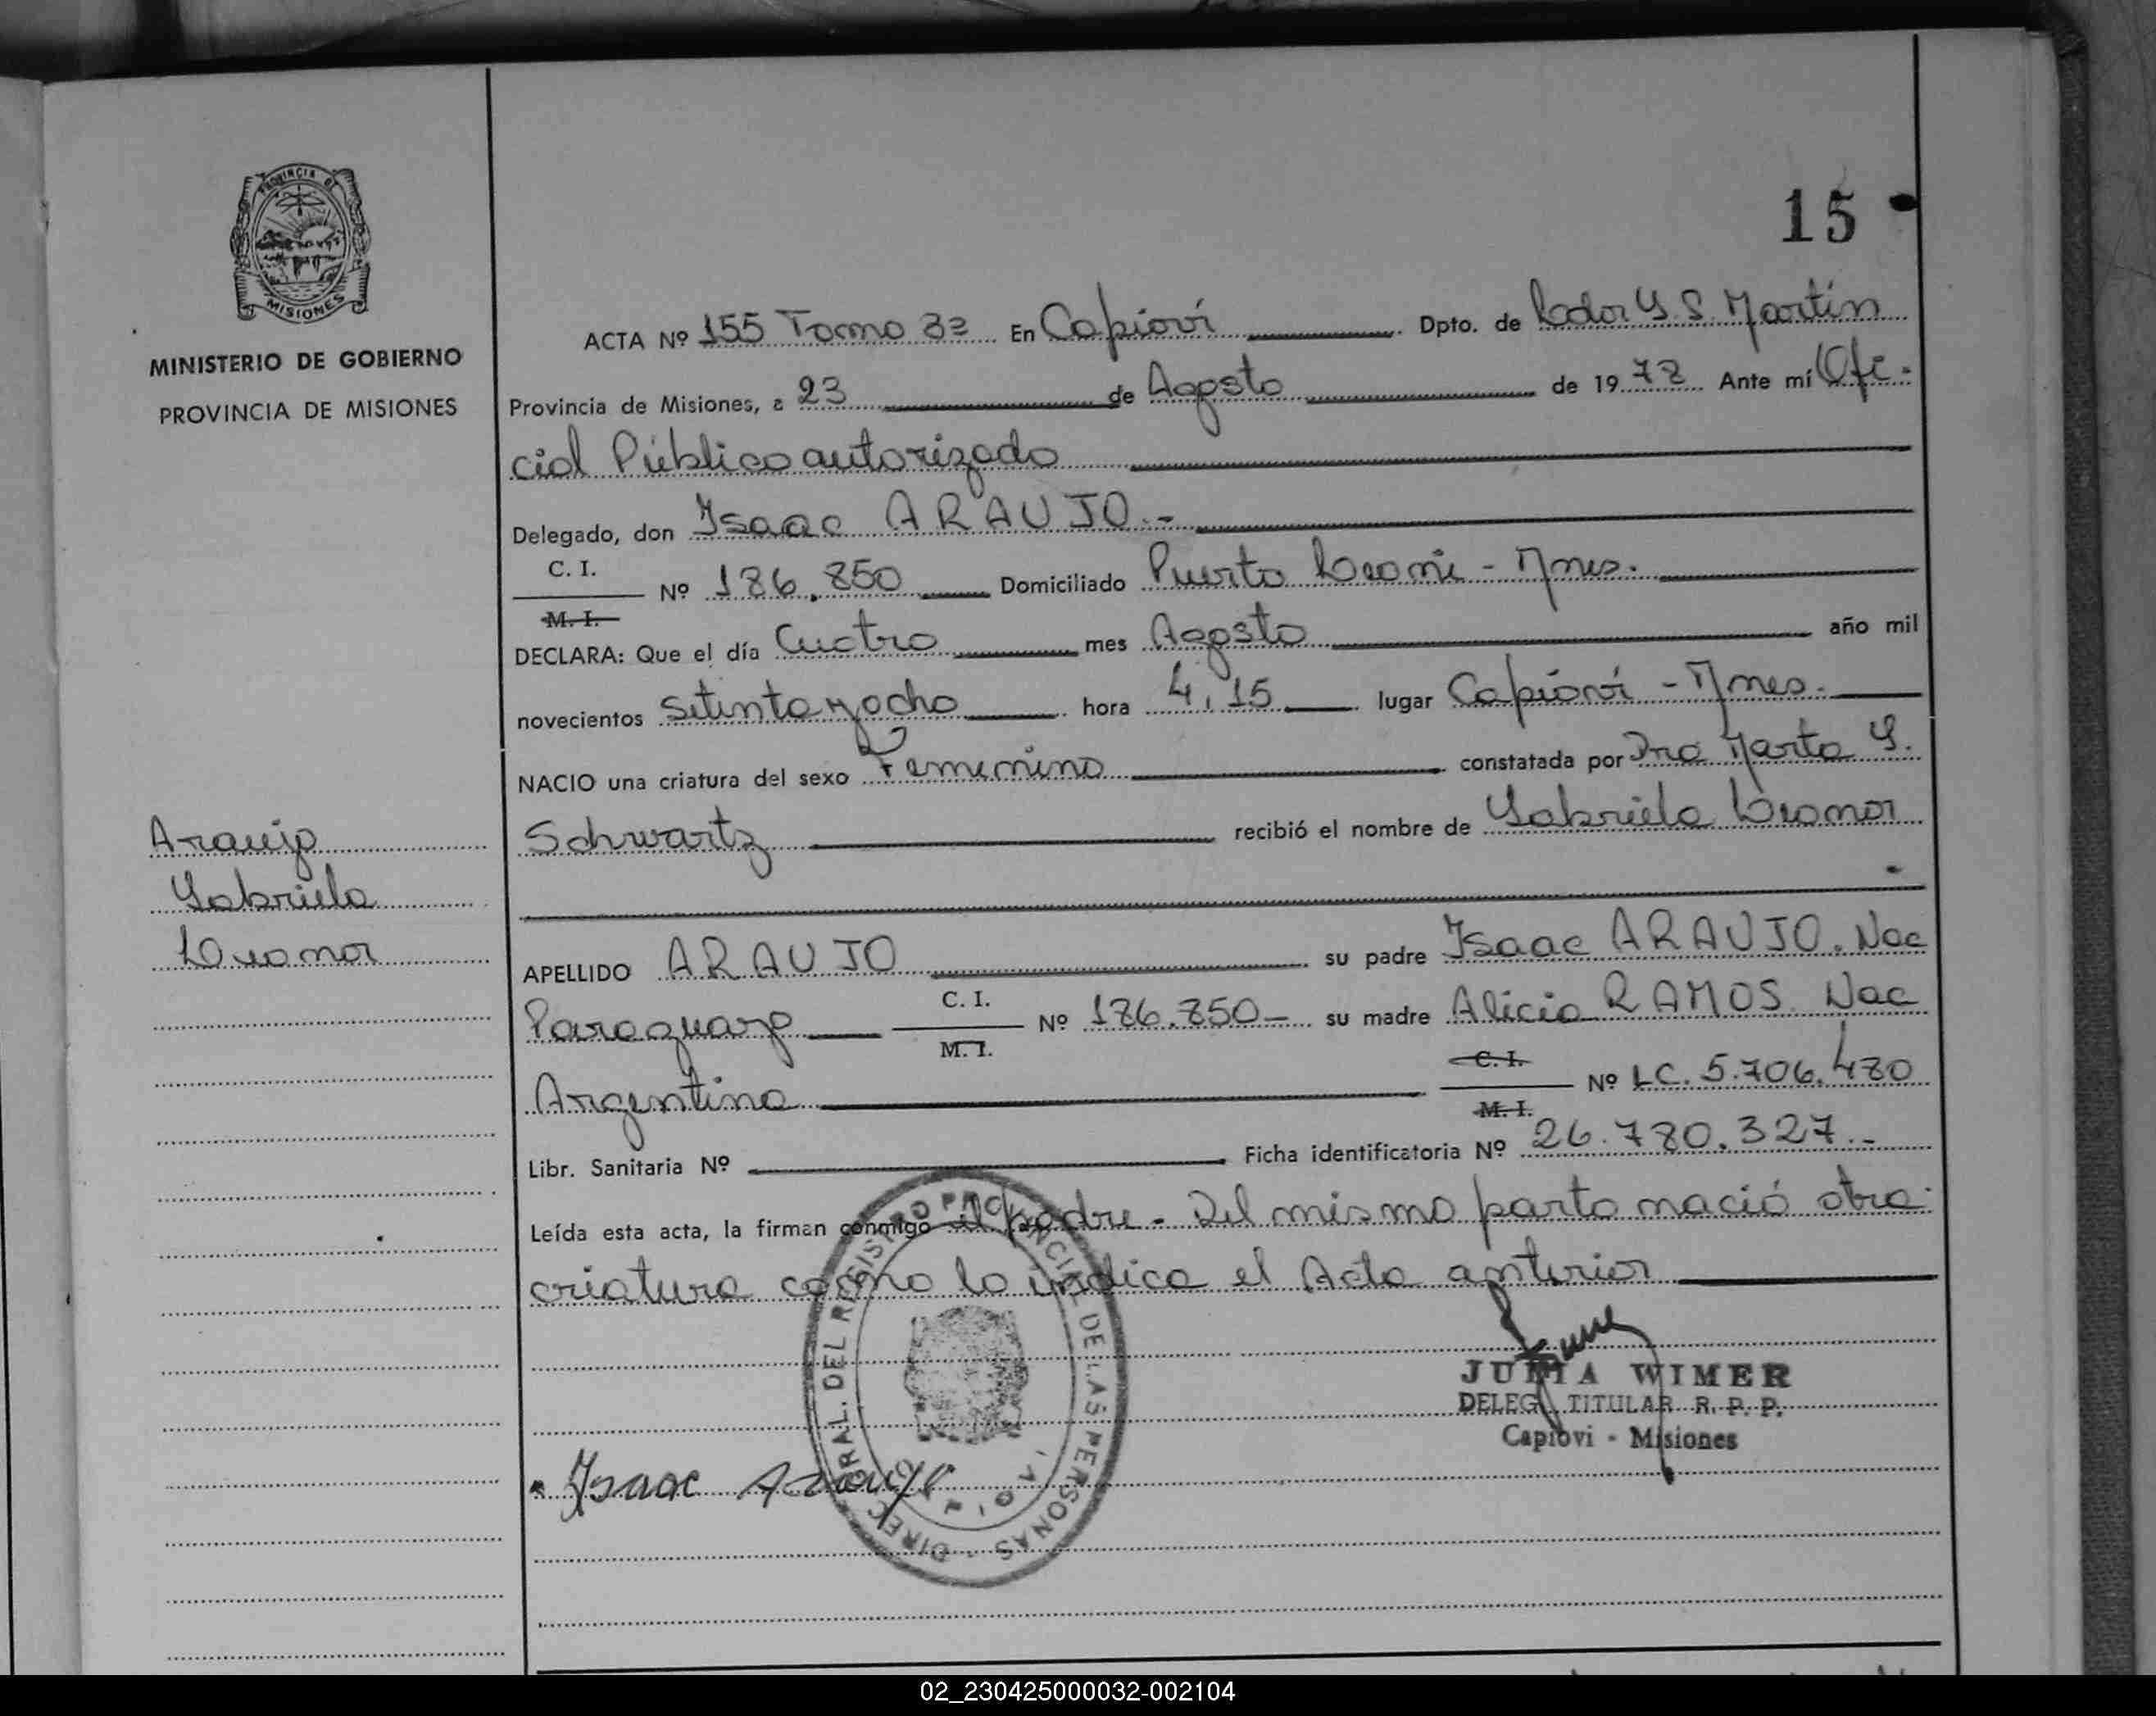 PROVINCIA DE
MISIONES
MINISTERIO DE GOBIERNO
PROVINCIA DE MISIONES
15
ACTA Nº 155 Tomo 3º En Capioví Dpto. de Ldor G. S. Martín
Provincia de Misiones, a 23 de Agosto de 1978 Ante mí Ofi-
cial Público autorizado
Delegado, don Isaac ARAUJO.-
C. I.
Nº 186.850 Domiciliado Puerto Leoni - Mnes.
M. I.
DECLARA: Que el día Cuatro mes Agosto año mil
novecientos setenta y ocho hora 4,15 lugar Capioví - Mnes.
NACIO una criatura del sexo Femenino constatada por Dra Marta G.
Schwartz recibió el nombre de Gabriela Leonor
Araujo
Gabriela
Leonor
APELLIDO ARAUJO su padre Isaac ARAUJO. Nac
Paraguayo C. I. Nº 186.850- su madre Alicia RAMOS. Nac
M. I.
Argentina C. I. Nº LC. 5.706.480
M. I.
Libr. Sanitaria Nº Ficha identificatoria Nº 26.780.327.-
Leída esta acta, la firman conmigo el padre - Del mismo parto nació otra
criatura como lo indica el Acta anterior
JULIA WIMER
DELEG. TITULAR R. P. P.
Capiovi - Misiones
Isaac Araujo
DEL REGISTRO PROVINCIAL DE LAS PERSONAS
02_230425000032-002104